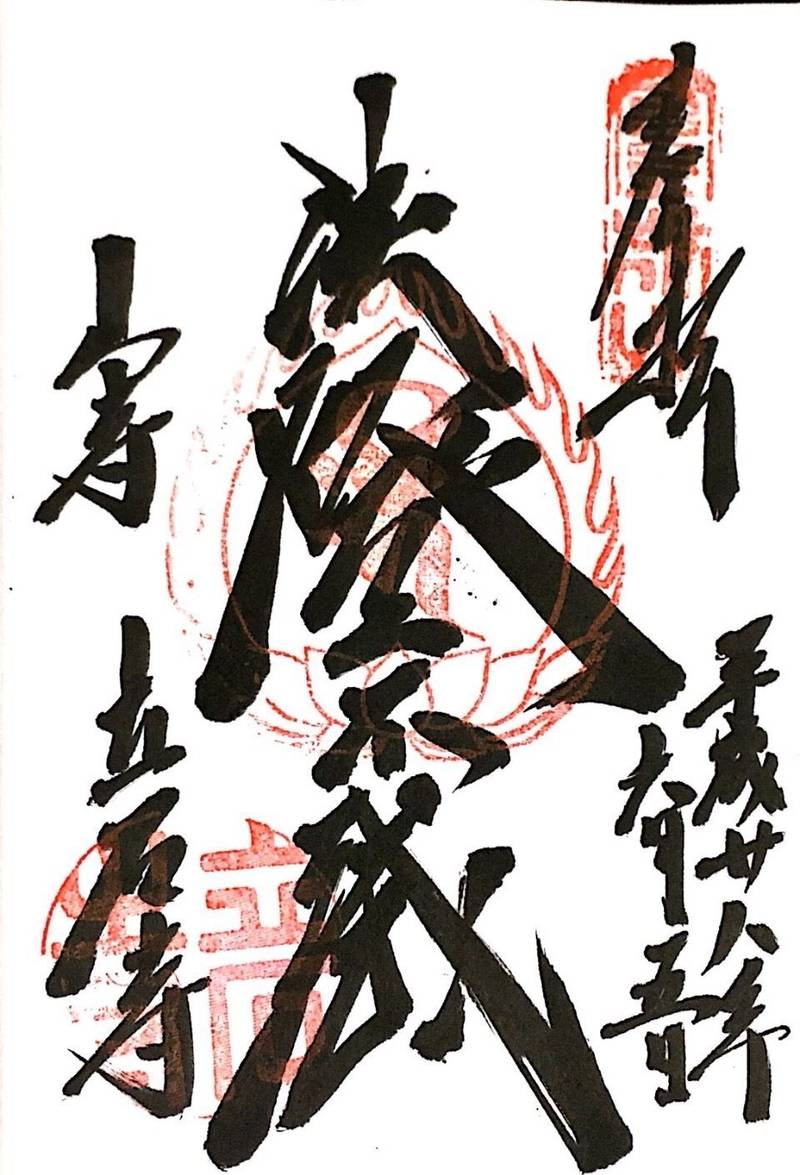 奉拝
平成廿八年
六月五日
法燈不滅
山寺
立石寺